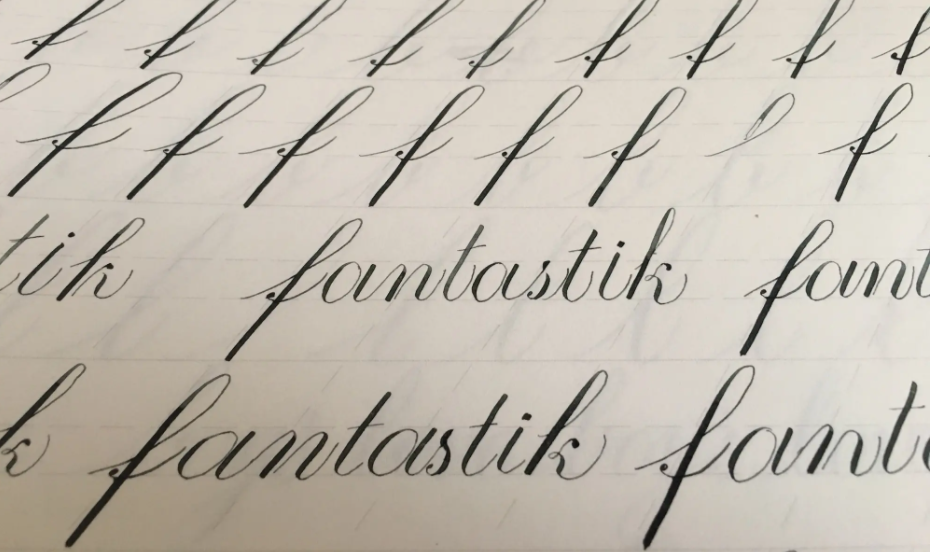 f f f f f f f f f
f f f f f f f
tik fantastik fant
k fantastik fanta